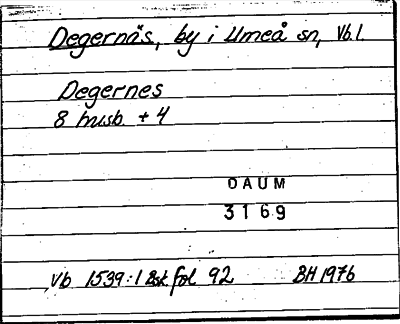 Degernäs, by i Umeå sn, Vb.l
Degernes
8 husb. + 4
DAUM
3169
Vb 1539:1 Bsk fol 92 BH 1976